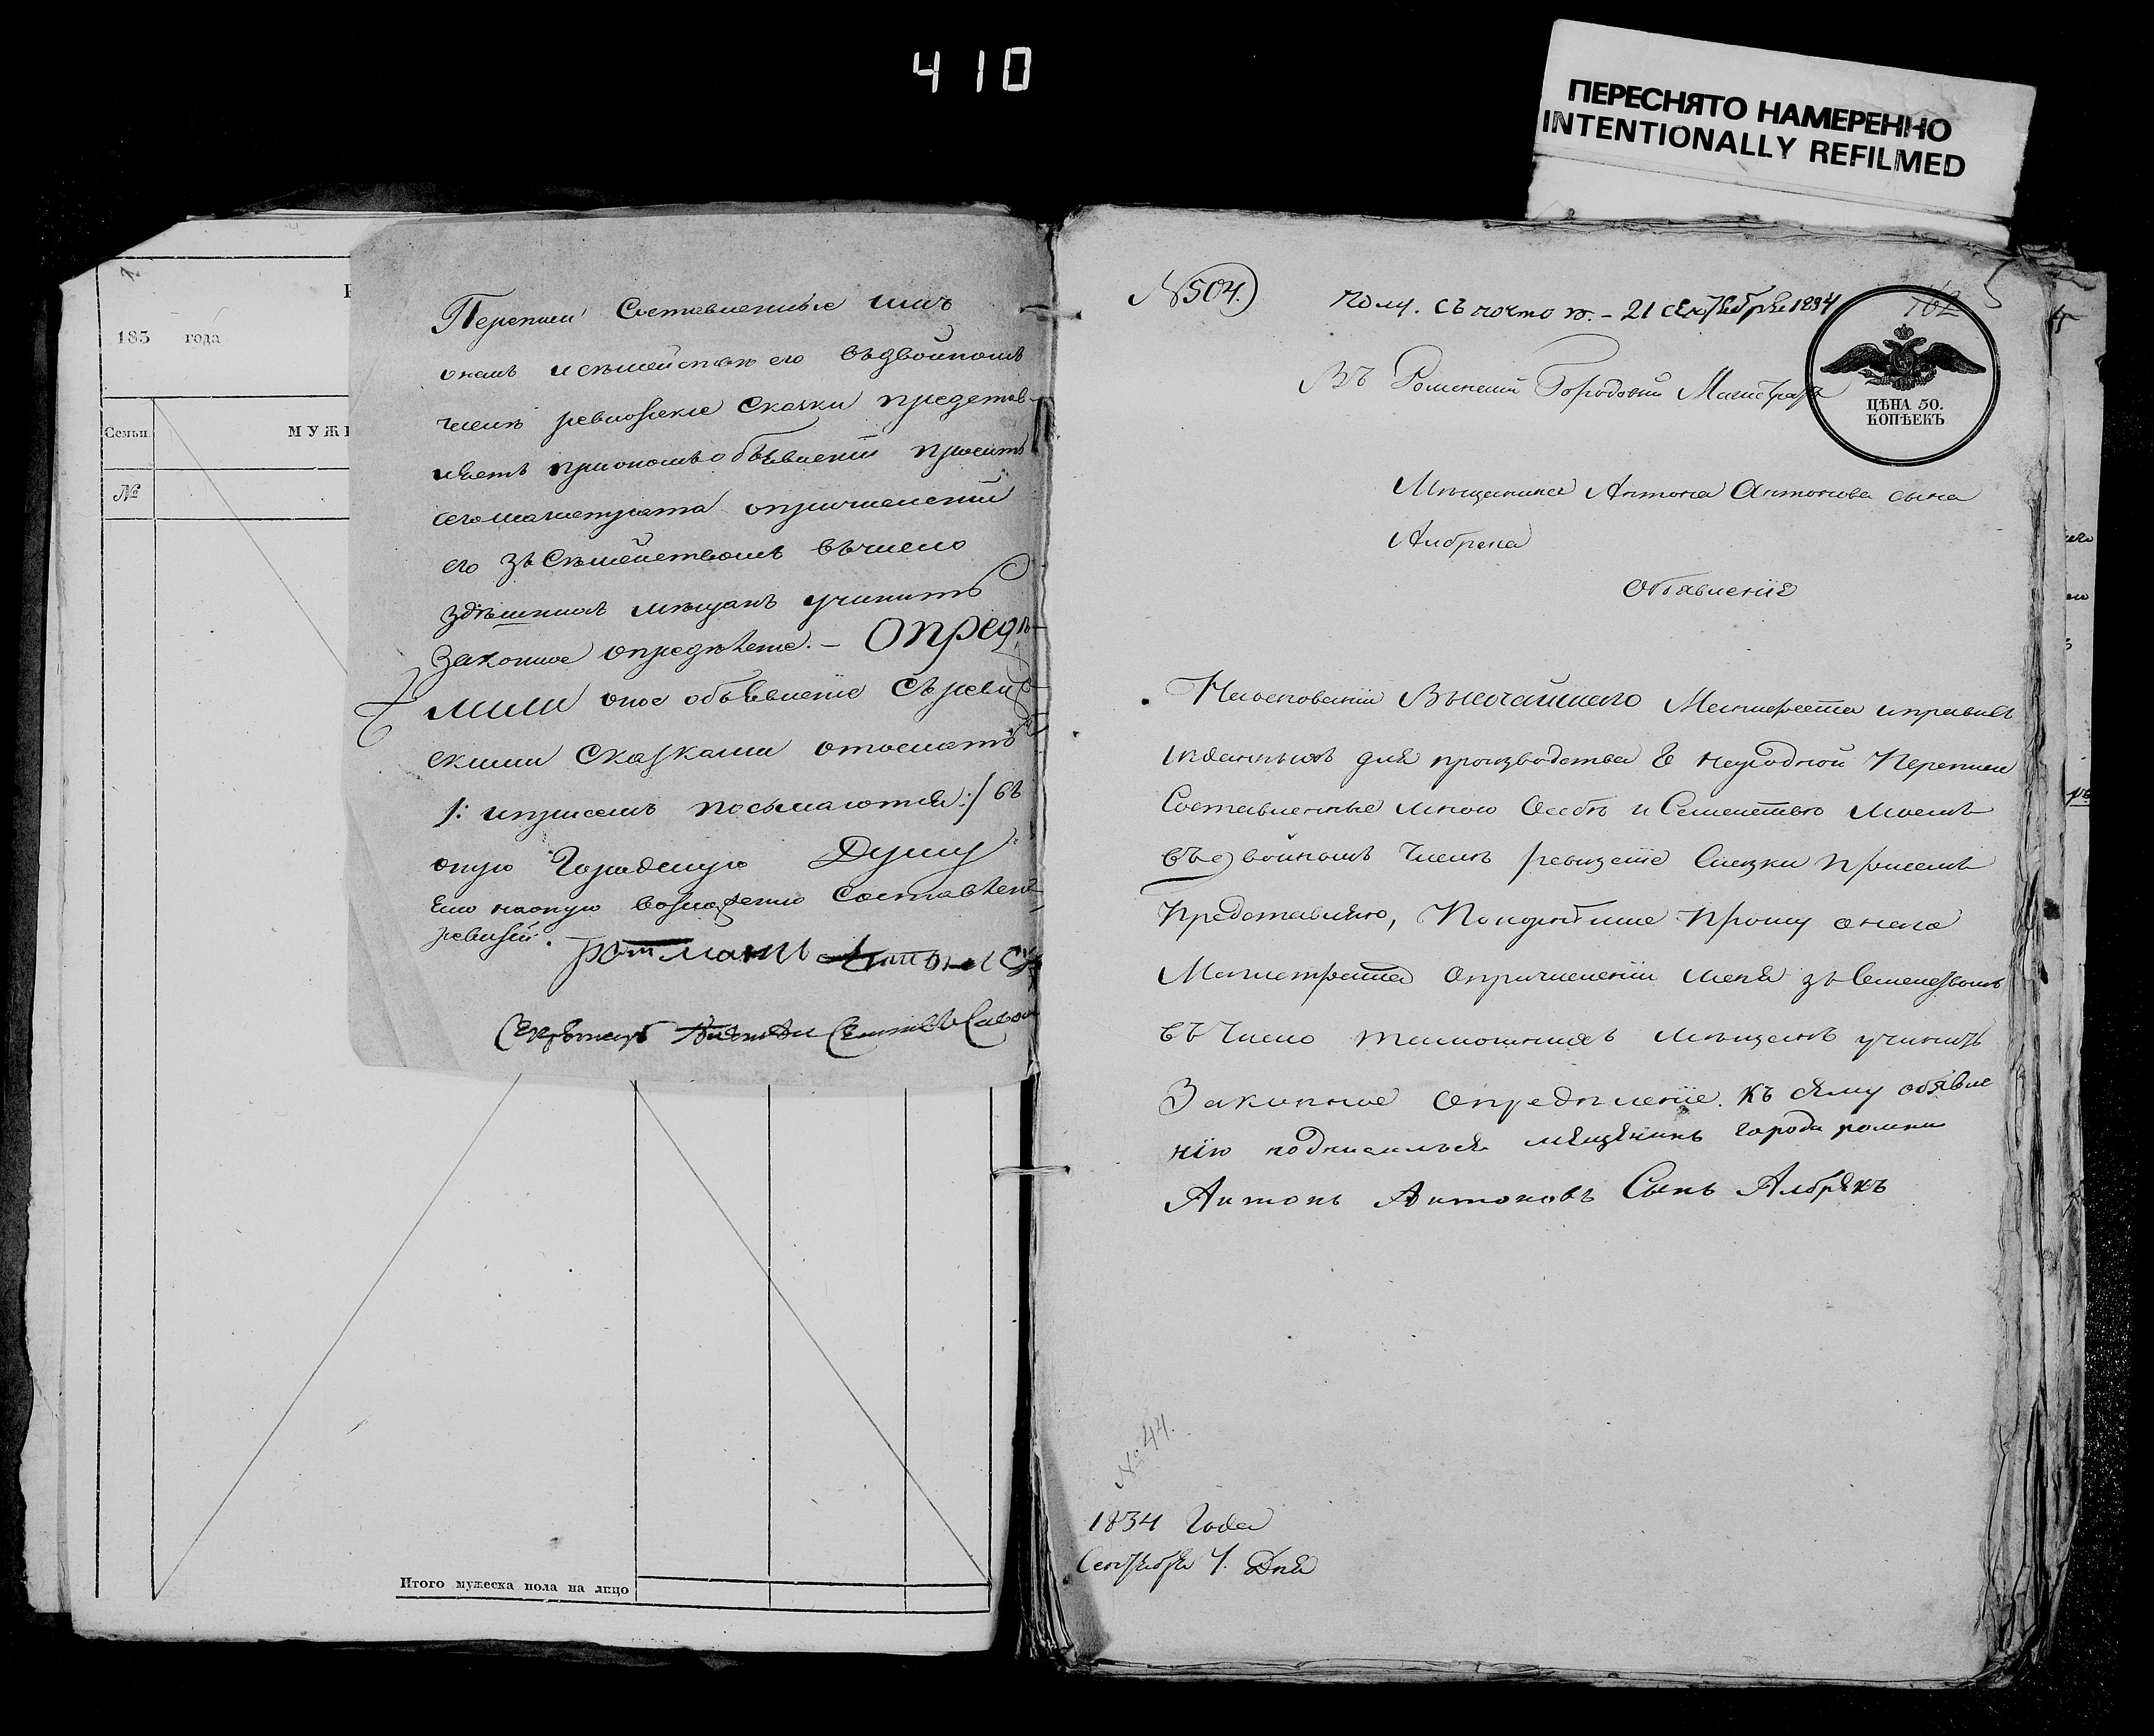 410
ПЕРЕСНЯТО НАМЕРЕННО
INTENTIONALLY REFILMED
183 года
Семьи
МУЖ
№
Переписи Составленные имъ
онамъ исѣмейству его въдвойномъ
числѣ ревизские Сказки представ-
ляетъ приономъ объявлении проситъ
сегомагистрата опричислении
его зъ Семействомъ въчисло
здѣшнихъ мѣщанъ учинить
Законное определение. — Опреде-
лили оное объявление съ реви
скими Сказками отослать
/: иприсемъ посылаются :/ въ
оную Городскую Думу
ревизий.
Ратманъ
Секретарь
Итого мужеска пола на лицо
№ 504.
Полу. съ почто ю. — 21 сентября 1834
5
Въ Роменский Городовый Магистратъ
ЦѢНА 50.
КОПѢЕКЪ
Мѣщанина Антона Антонова сына
Албрена
Объявление
Наосновании Высочайшаго Манифеста иправилъ
изданныхъ для производства 8 народной Переписи
Составленные мною Особѣ и Семейству моемъ
въдвойномъ числѣ ревизские Сказки присемъ
Представляю, Покорнѣйше Прошу онаго
Магистрата опричислении меня зъ Семействомъ
въ Число тамошнихъ мѣщанъ учинить
Законное Определение. Къ сему объявле
нію подписалься мещенинъ города ромна
Антонъ Антоновъ Сынъ Албрекъ
№ 44.
1834 Года
Сентября 1. Дня